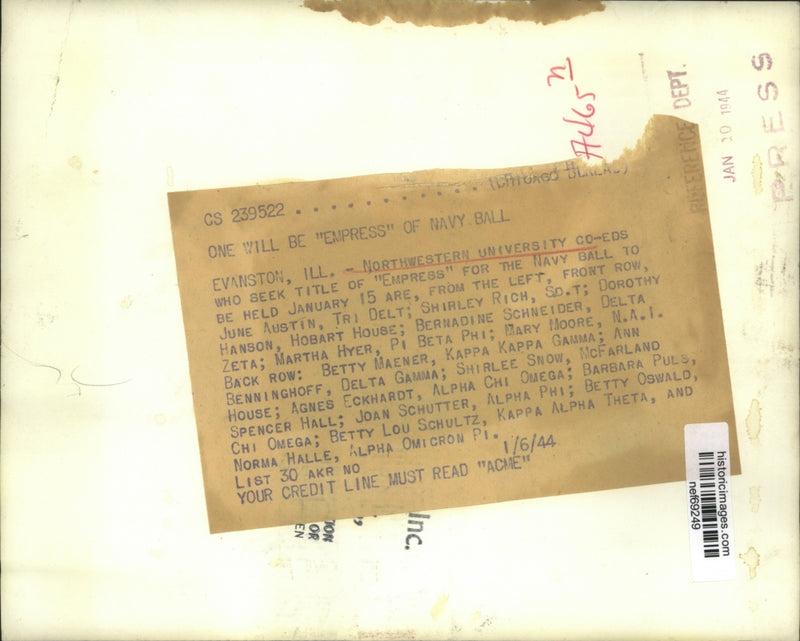 A465 n
REFERENCE DEPT.
JAN 20 1944
PRESS
(CHICAGO BUREAU)
CS 239522 . . . . . . . . . . . . . . .
ONE WILL BE "EMPRESS" OF NAVY BALL
EVANSTON, ILL. - NORTHWESTERN UNIVERSITY CO-EDS
WHO SEEK TITLE OF "EMPRESS" FOR THE NAVY BALL TO
BE HELD JANUARY 15 ARE, FROM THE LEFT, FRONT ROW,
JUNE AUSTIN, TRI DELT; SHIRLEY RICH, SD.T; DOROTHY
HANSON, HOBART HOUSE; BERNADINE SCHNEIDER, DELTA
ZETA; MARTHA HYER, PI BETA PHI; MARY MOORE, N.A.I.
BACK ROW: BETTY MAENER, KAPPA KAPPA GAMMA; ANN
BENNINGHOFF, DELTA GAMMA; SHIRLEE SNOW, MCFARLAND
HOUSE; AGNES ECKHARDT, ALPHA CHI OMEGA; BARBARA PULS,
SPENCER HALL; JOAN SCHUTTER, ALPHA PHI; BETTY OSWALD,
CHI OMEGA; BETTY LOU SCHULTZ, KAPPA ALPHA THETA, AND
NORMA HALLE, ALPHA OMICRON PI.
LIST 30 AKR NO 1/6/44
YOUR CREDIT LINE MUST READ "ACME"
Inc.
TION
OR
EN
historicimages.com
nef69249